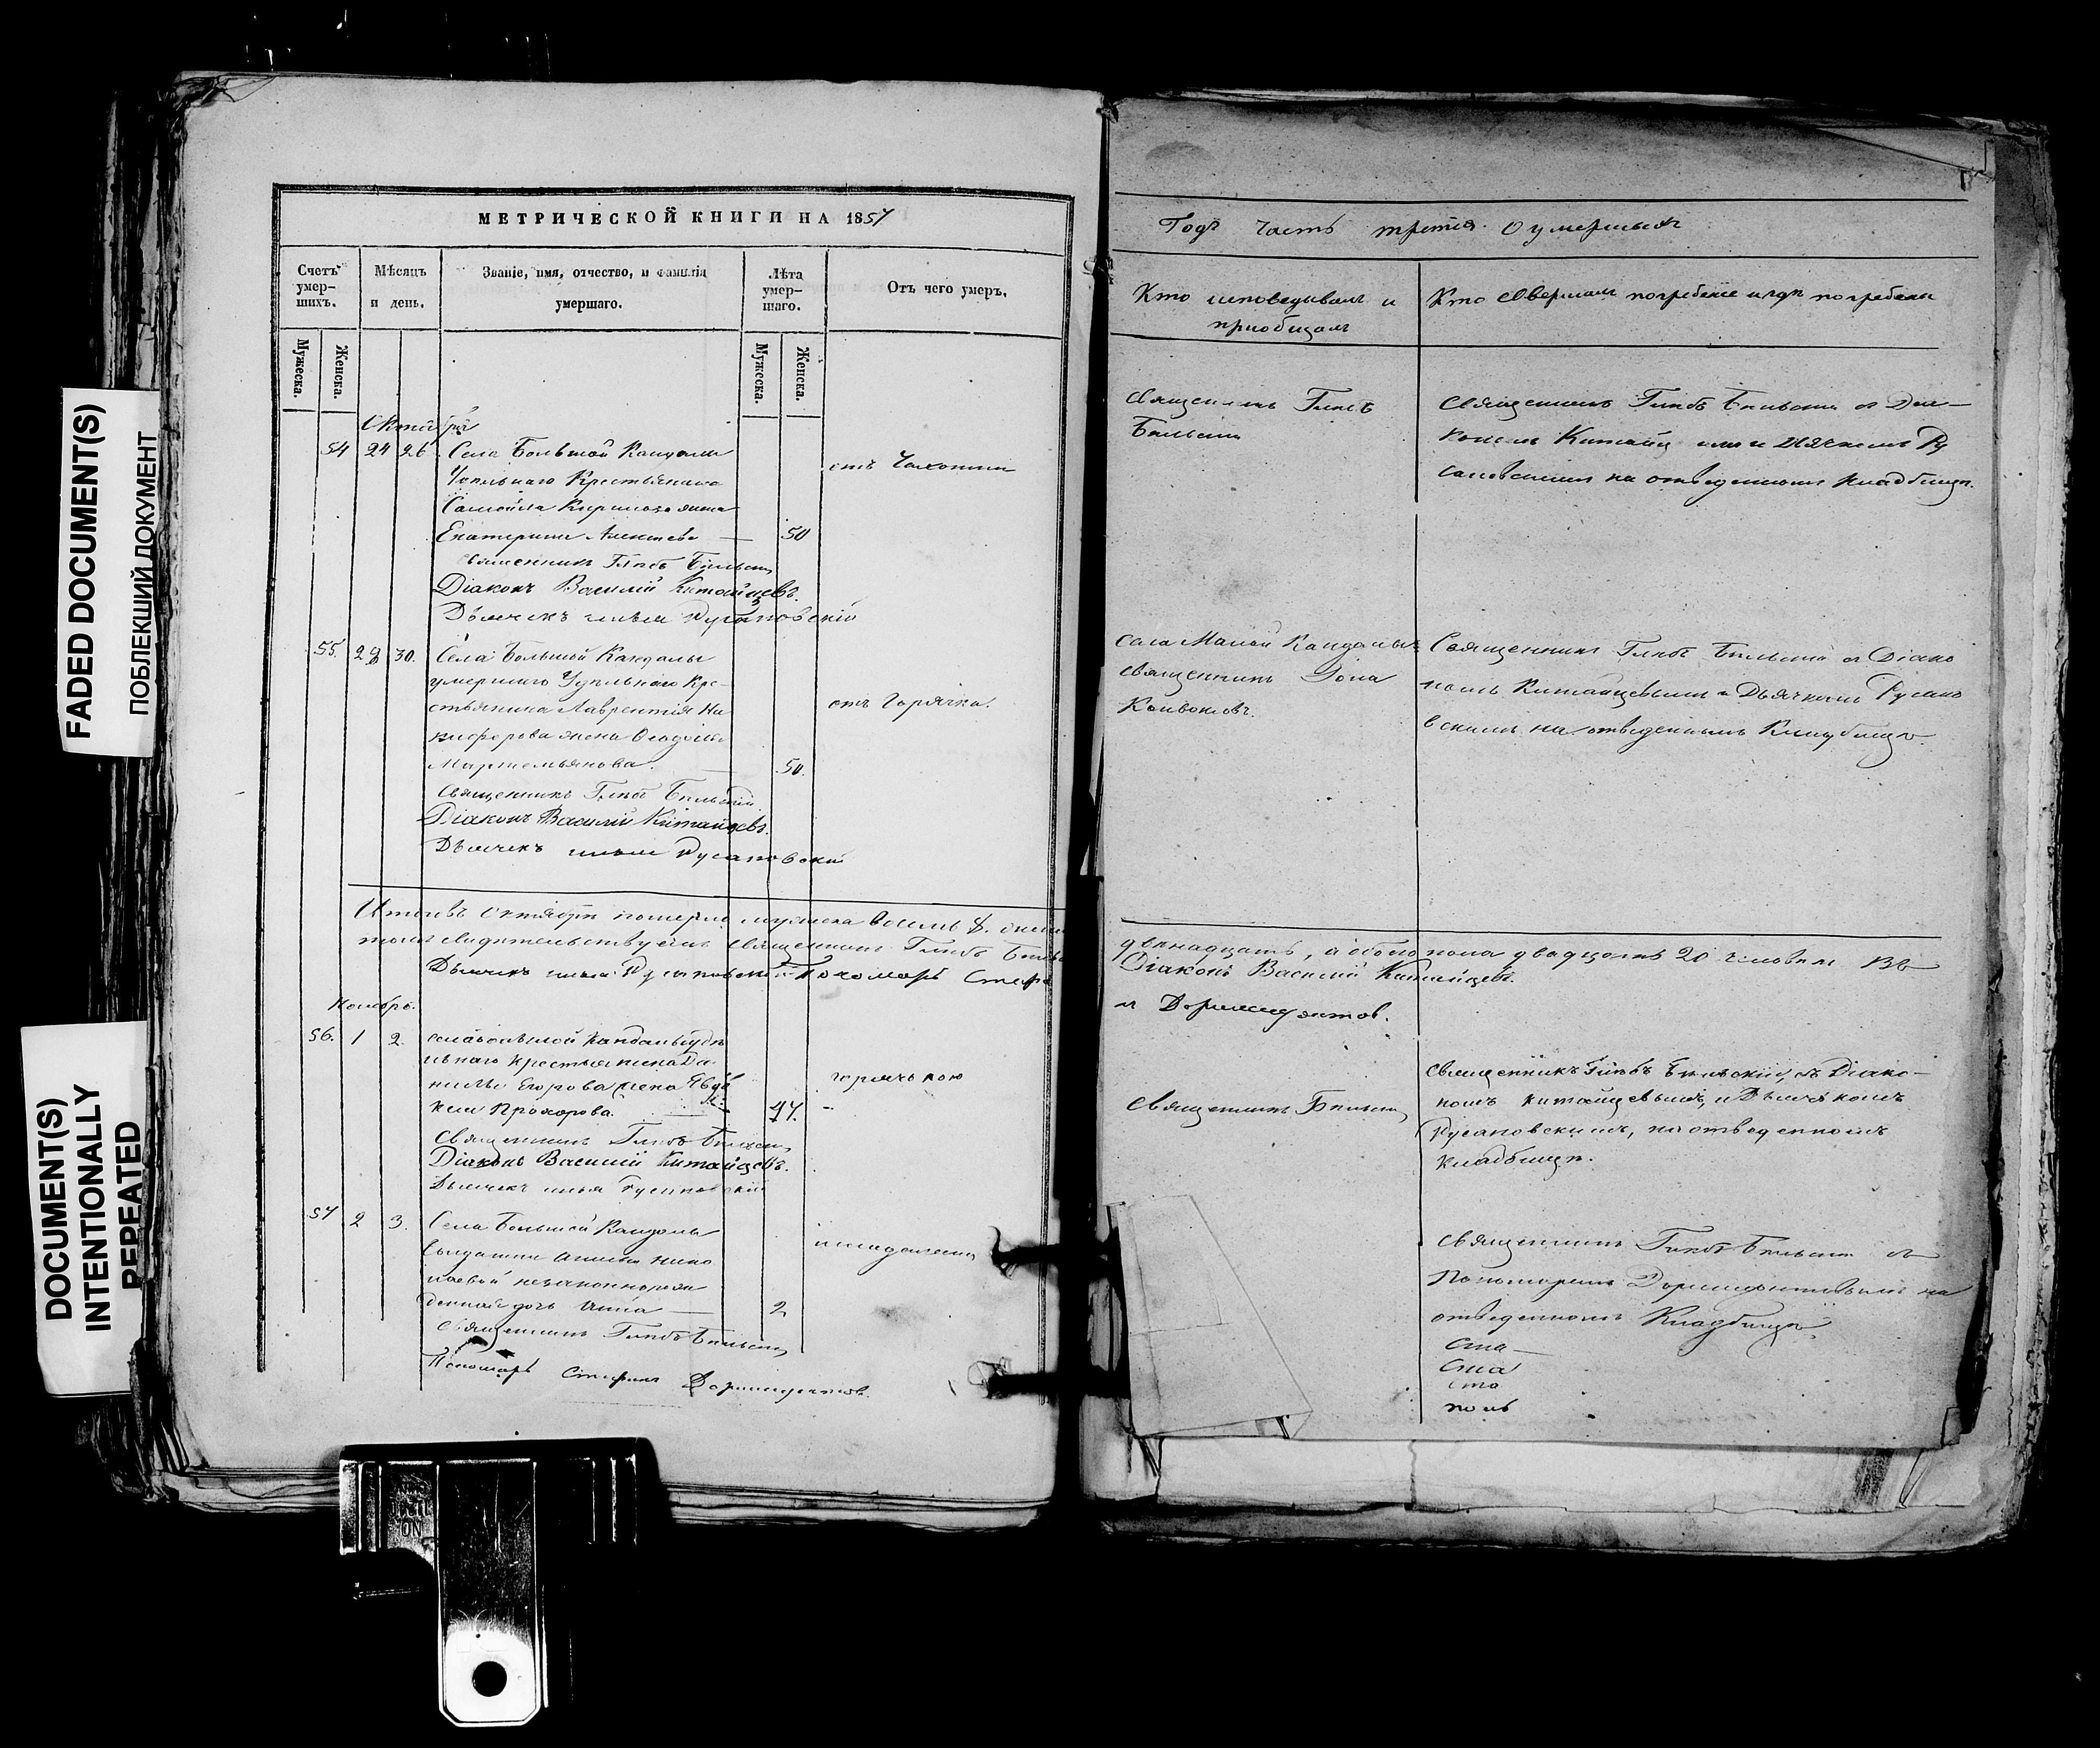 FADED DOCUMENT(S)
ПОБЛЕКШИЙ ДОКУМЕНТ
DOCUMENT(S)
INTENTIONALLY
REPEATED
МЕТРИЧЕСКОЙ КНИГИ НА 1857
Счетъ умер-шихъ.
Мѣсяцъ и день.
Званіе, имя, отчество, и фамилія умершаго.
Лѣта умер-шаго.
Отъ чего умеръ.
Мужеска.
Женска.
Мужеска.
Женска.
Октября
54 24 26 Села Большой Кандалы
Удѣльнаго Крестьянина
Самойла Кирилова жена
Екатерина Алексѣева — 50
отъ Чахотки
Священникъ Глѣбъ Бѣльскій
Діаконъ Василій Китайцевъ.
Дьячекъ Илья Русановскій
55. 28 30. Села Большой Кандалы
умершаго Удѣльнаго Кре-
стьянина Лаврентія Ни
кифорова жена
Мартемьянова. 50.
отъ Горячки.
Священникъ Глѣбъ Бѣльскій
Діаконъ Василій Китайцевъ.
Дьячекъ Илья Русановскій
Итого въ Октябрѣ померло мужеска восемь 8.
томъ свидѣтельствуемъ Священникъ Глѣбъ
Дьячекъ Илья Русановскій Пономарь
Ноябрь.
56. 1 2. села большой Кандалы удѣ
льнаго крестьянина Да-
нилы Егорова жена Евдо
кея Прохорова. 47.
горячкою
Священникъ Глѣбъ Бѣльскій
Діаконъ Василій Китайцевъ.
Дьячекъ Илья Русановскій
57 2 3. Села Большой Кандалы
Солдатки Нико
лаевой незаконнорож
денная дочь Анна — 2
Священникъ Глѣбъ Бѣльскій
Пономарь Стефанъ Доримедонтовъ.
Годъ Часть третія О умершихъ
Кто исповѣдывалъ и
приобщалъ
Кто совершалъ погребеніе и гдѣ погребены
Священникъ Глѣбъ
Бѣльскій
Священникъ Глѣбъ Бѣльскій съ Діа-
кономъ Ру
сановскимъ на отведенномъ кладбищѣ.
Села Малой Кандалы
священникъ Іона
Священникъ Глѣбъ Бѣльскій съ Діако
номъ Китайцевымъ и Дьячкомъ Русано
вскимъ на отведенномъ Кладбищѣ.
двѣнадцать, а обоего пола двадцать 20 человѣкъ Въ
Діаконъ Василій Китайцевъ.
Доримедонтов.
Священникъ Бѣльскій
Священникъ Глѣбъ Бѣльскій, съ Діако-
номъ Китайцевымъ, и Дьячкомъ
Русановскимъ, на отведенномъ
кладбищѣ.
Священникъ Глѣбъ Бѣльскій съ
Пономаремъ Доримедонтовымъ на
отведенномъ Кладбищѣ.